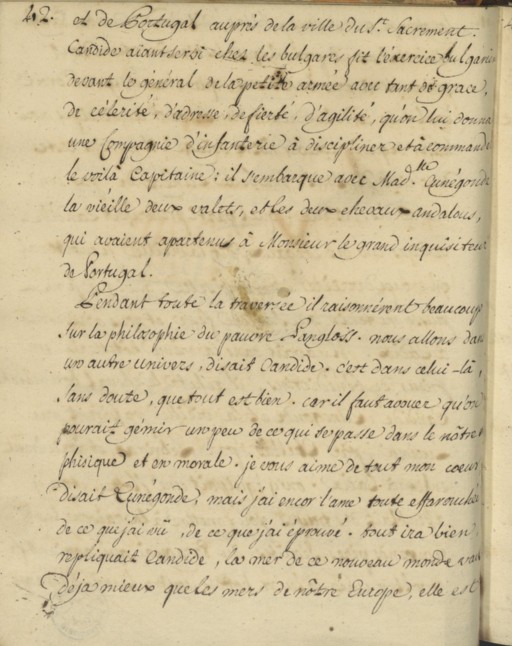 42. et de Portugal auprès de la ville du St. Sacrement.
Candide aiant servi chez les bulgares fit l'éxercice bulgarien
devant le général de la petite armée avec tant de grace,
de célerité, d'adresse, de fierté, d'agilité, qu'on lui donna
une Compagnie d'infanterie à discipliner et à commander
le voilà Capitaine: il s'embarque avec Madlle. Cunégonde
la vieille deux valets, et les deux chevaux andalous,
qui avaient apartenus à Monsieur le grand inquisiteur
de Portugal.
Pendant toute la traversée il raisonnérent beaucoup
sur la philosophie du pauvre Pangloss. nous allons dans
un autre univers, disait Candide. c'est dans celui-là,
sans doute, que tout est bien. car il faut avouer qu'on
pourait gémir un peu de ce qui se passe dans le nôtre
phisique et en morale. je vous aime de tout mon coeur
disait Cunégonde, mais j'ai encor l'ame toute effarouchée
de ce que j'ai vû, de ce que j'ai éprouvé. tout ira bien
repliquait Candide, la mer de ce nouveau monde vaut
déja mieux que les mers de nôtre Europe, elle est